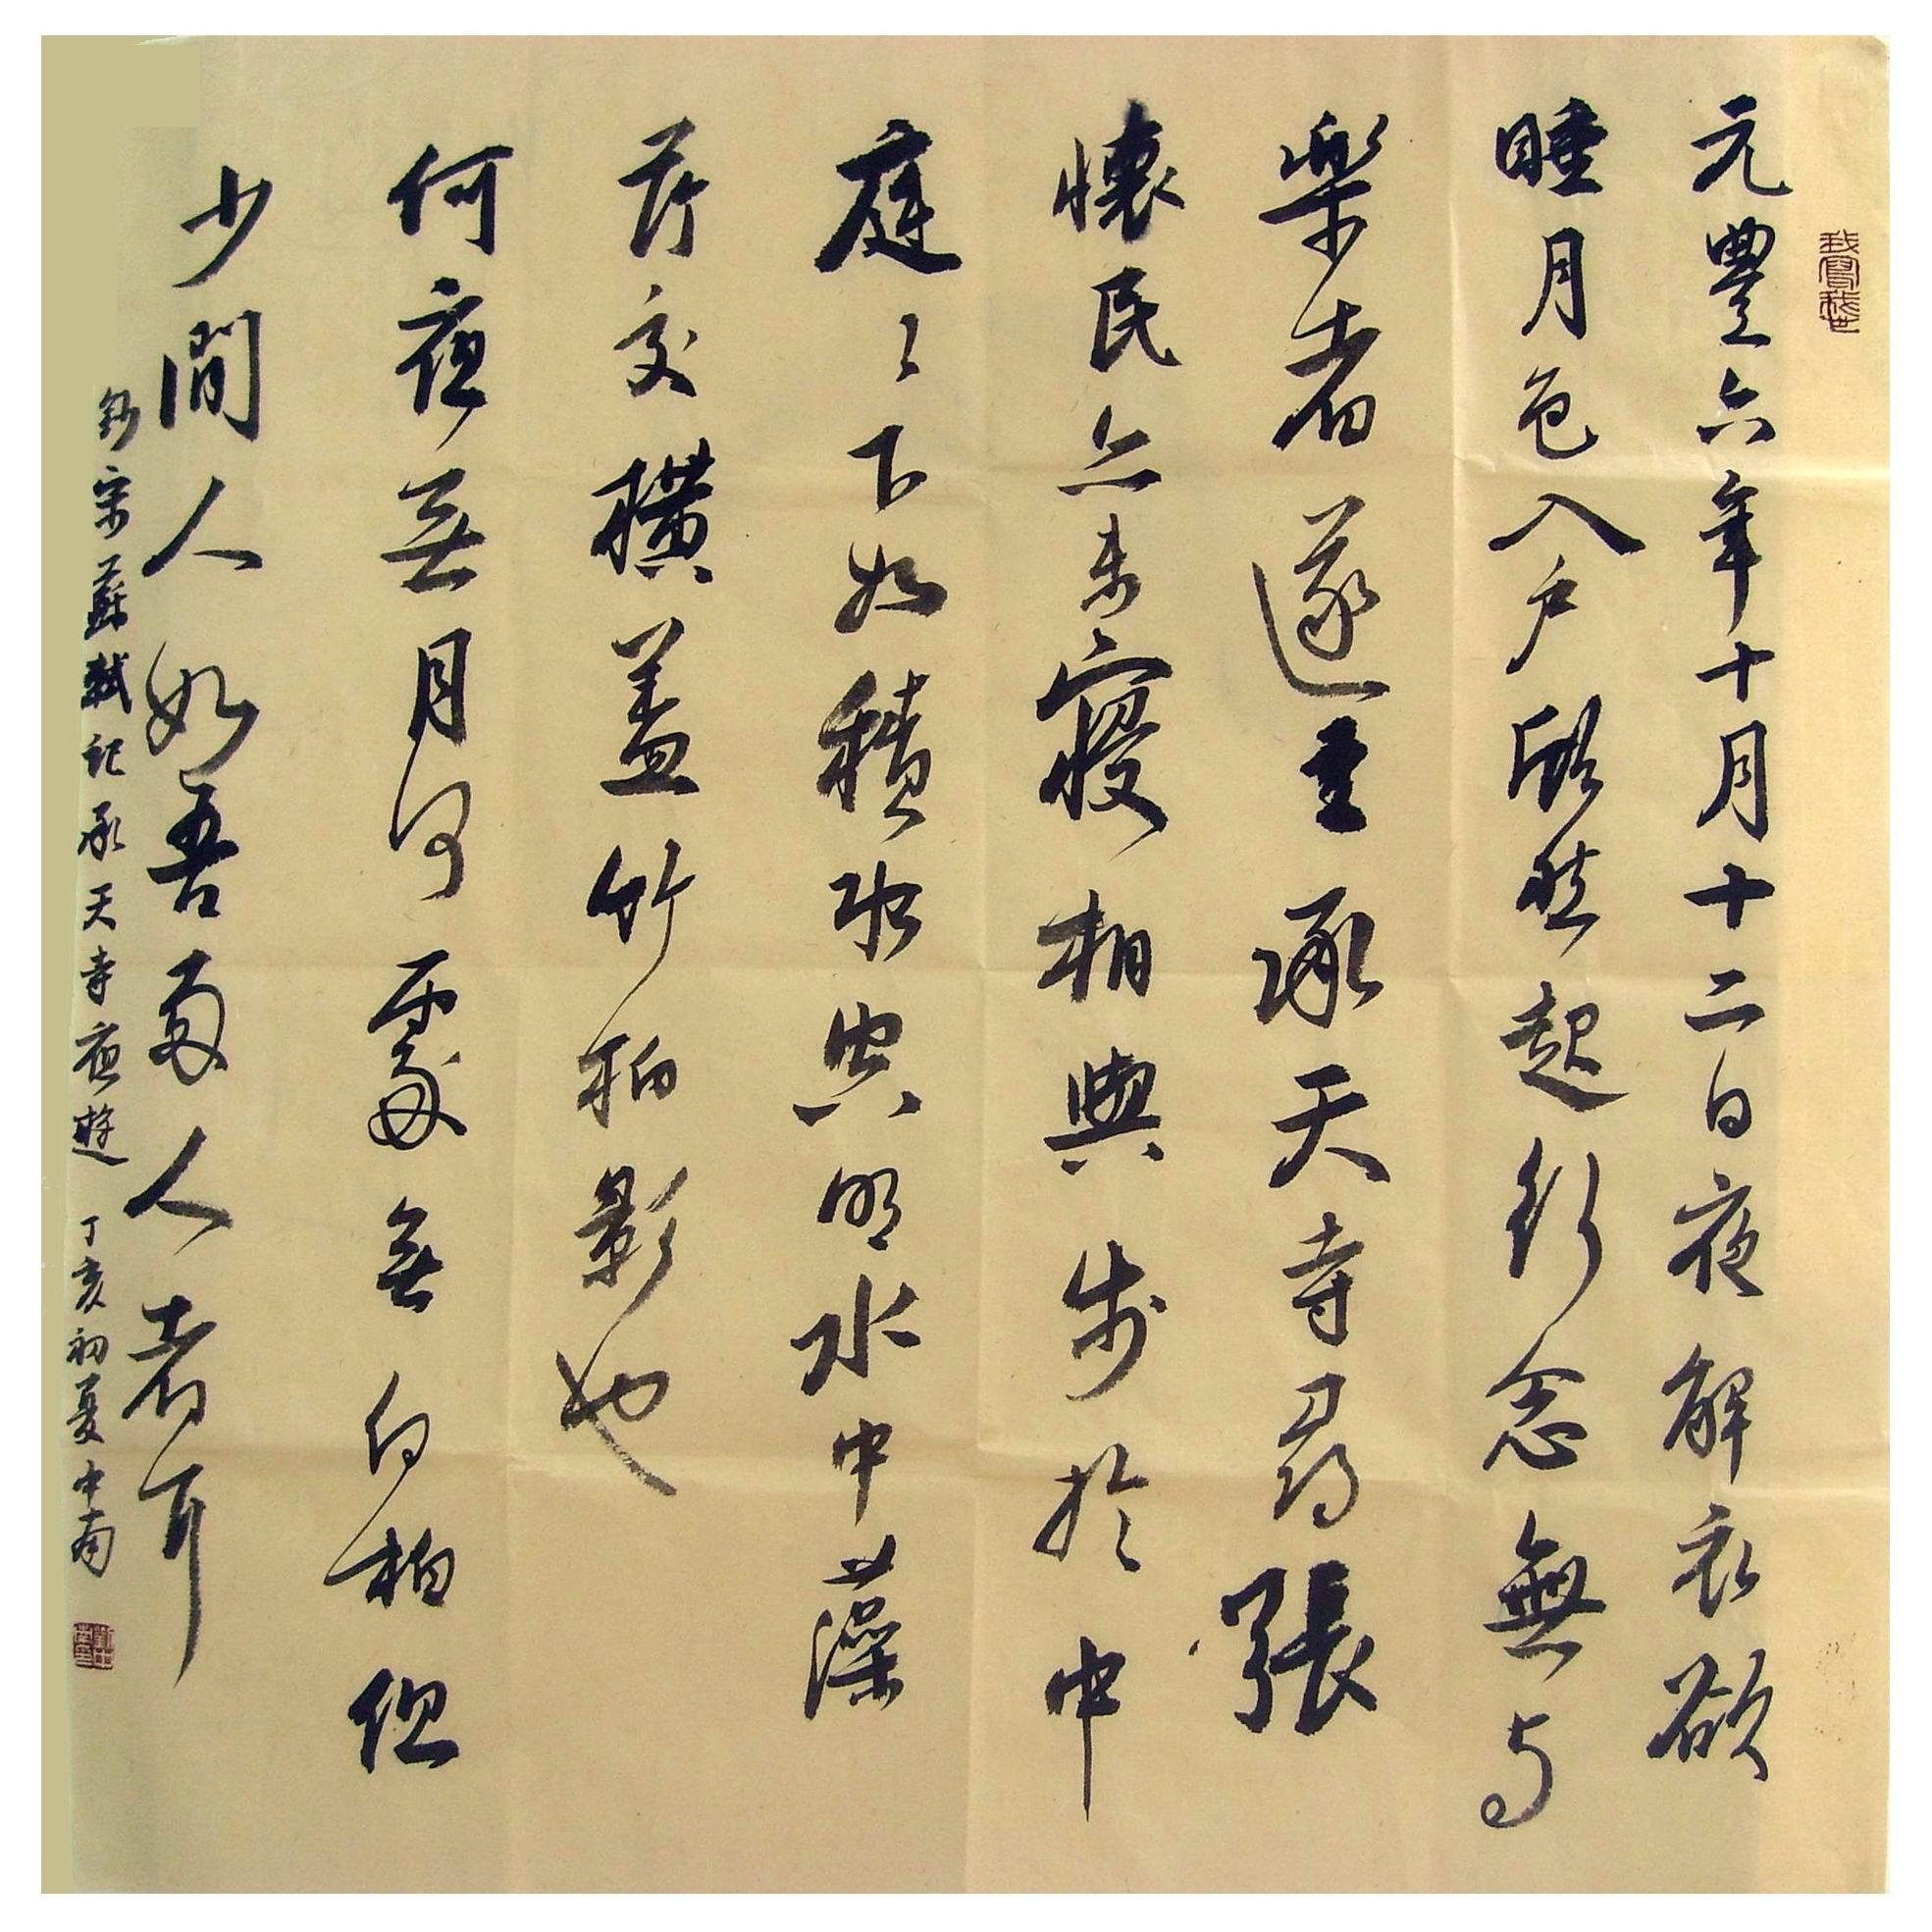 元豐六年十月十二日夜解衣欲
睡月色入户欣然起行念無与
樂者遂至承天寺尋張
懷民亦未寢相與步於中
庭〻下如積水空明水中藻
荇交橫蓋竹柏影也
何夜無月何處無竹柏但
少閒人如吾兩人者耳
鈔宋蘇軾記承天寺夜遊 丁亥初夏中南